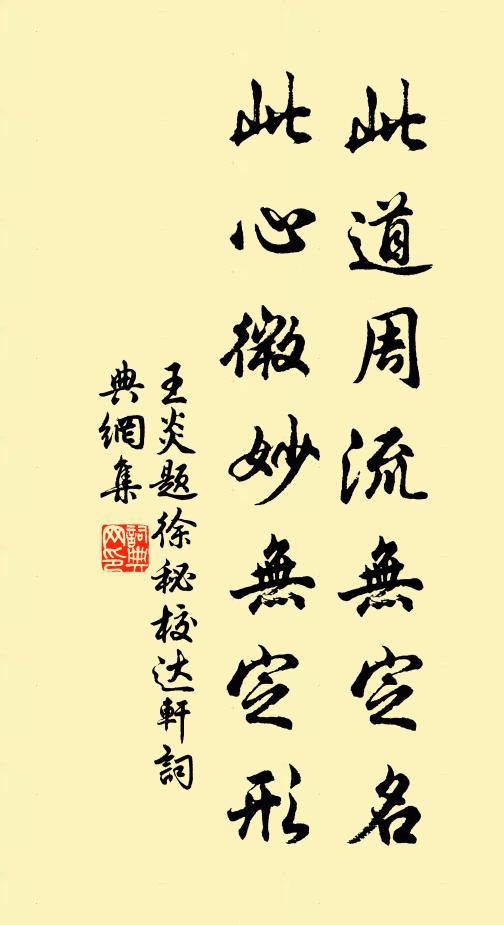 此道周流無定名
此心微妙無定形
王炎题徐秘校达軒詞
典網集
詞典
网印